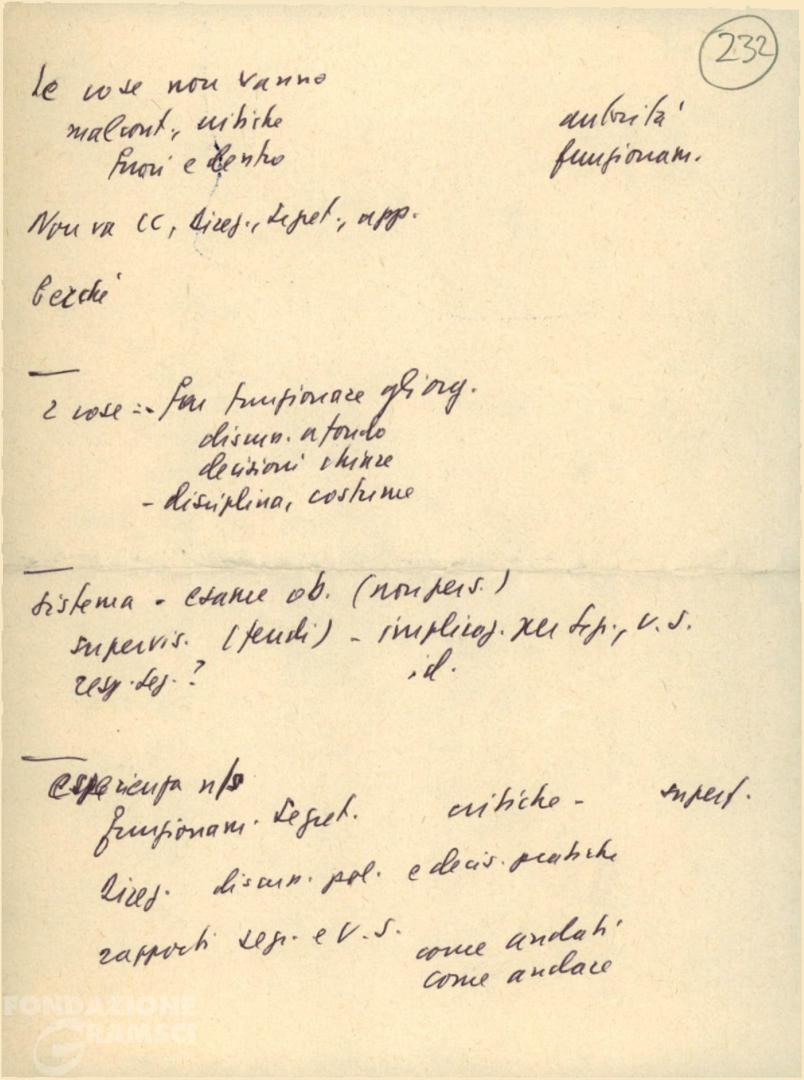 232
Le cose non vanno
malcont., critiche autorità
fuori e dentro funzionam.
Non va CC, Direz., Segret., app.
Perché
2 cose :- far funzionare gli org.
discuss. a fondo
decisioni chiare
- disciplina, costume
sistema - esame ob. (non pers.)
supervis. - implicaz. per Segr., v.s.
resp. seg.? id.
esperienza n/s
funzionam. Segret. critiche -
Direz. discuss. pol. e decis. pratiche
rapporti segr. e V.S.
come andati
come andare
FONDAZIONE
GRAMSCI